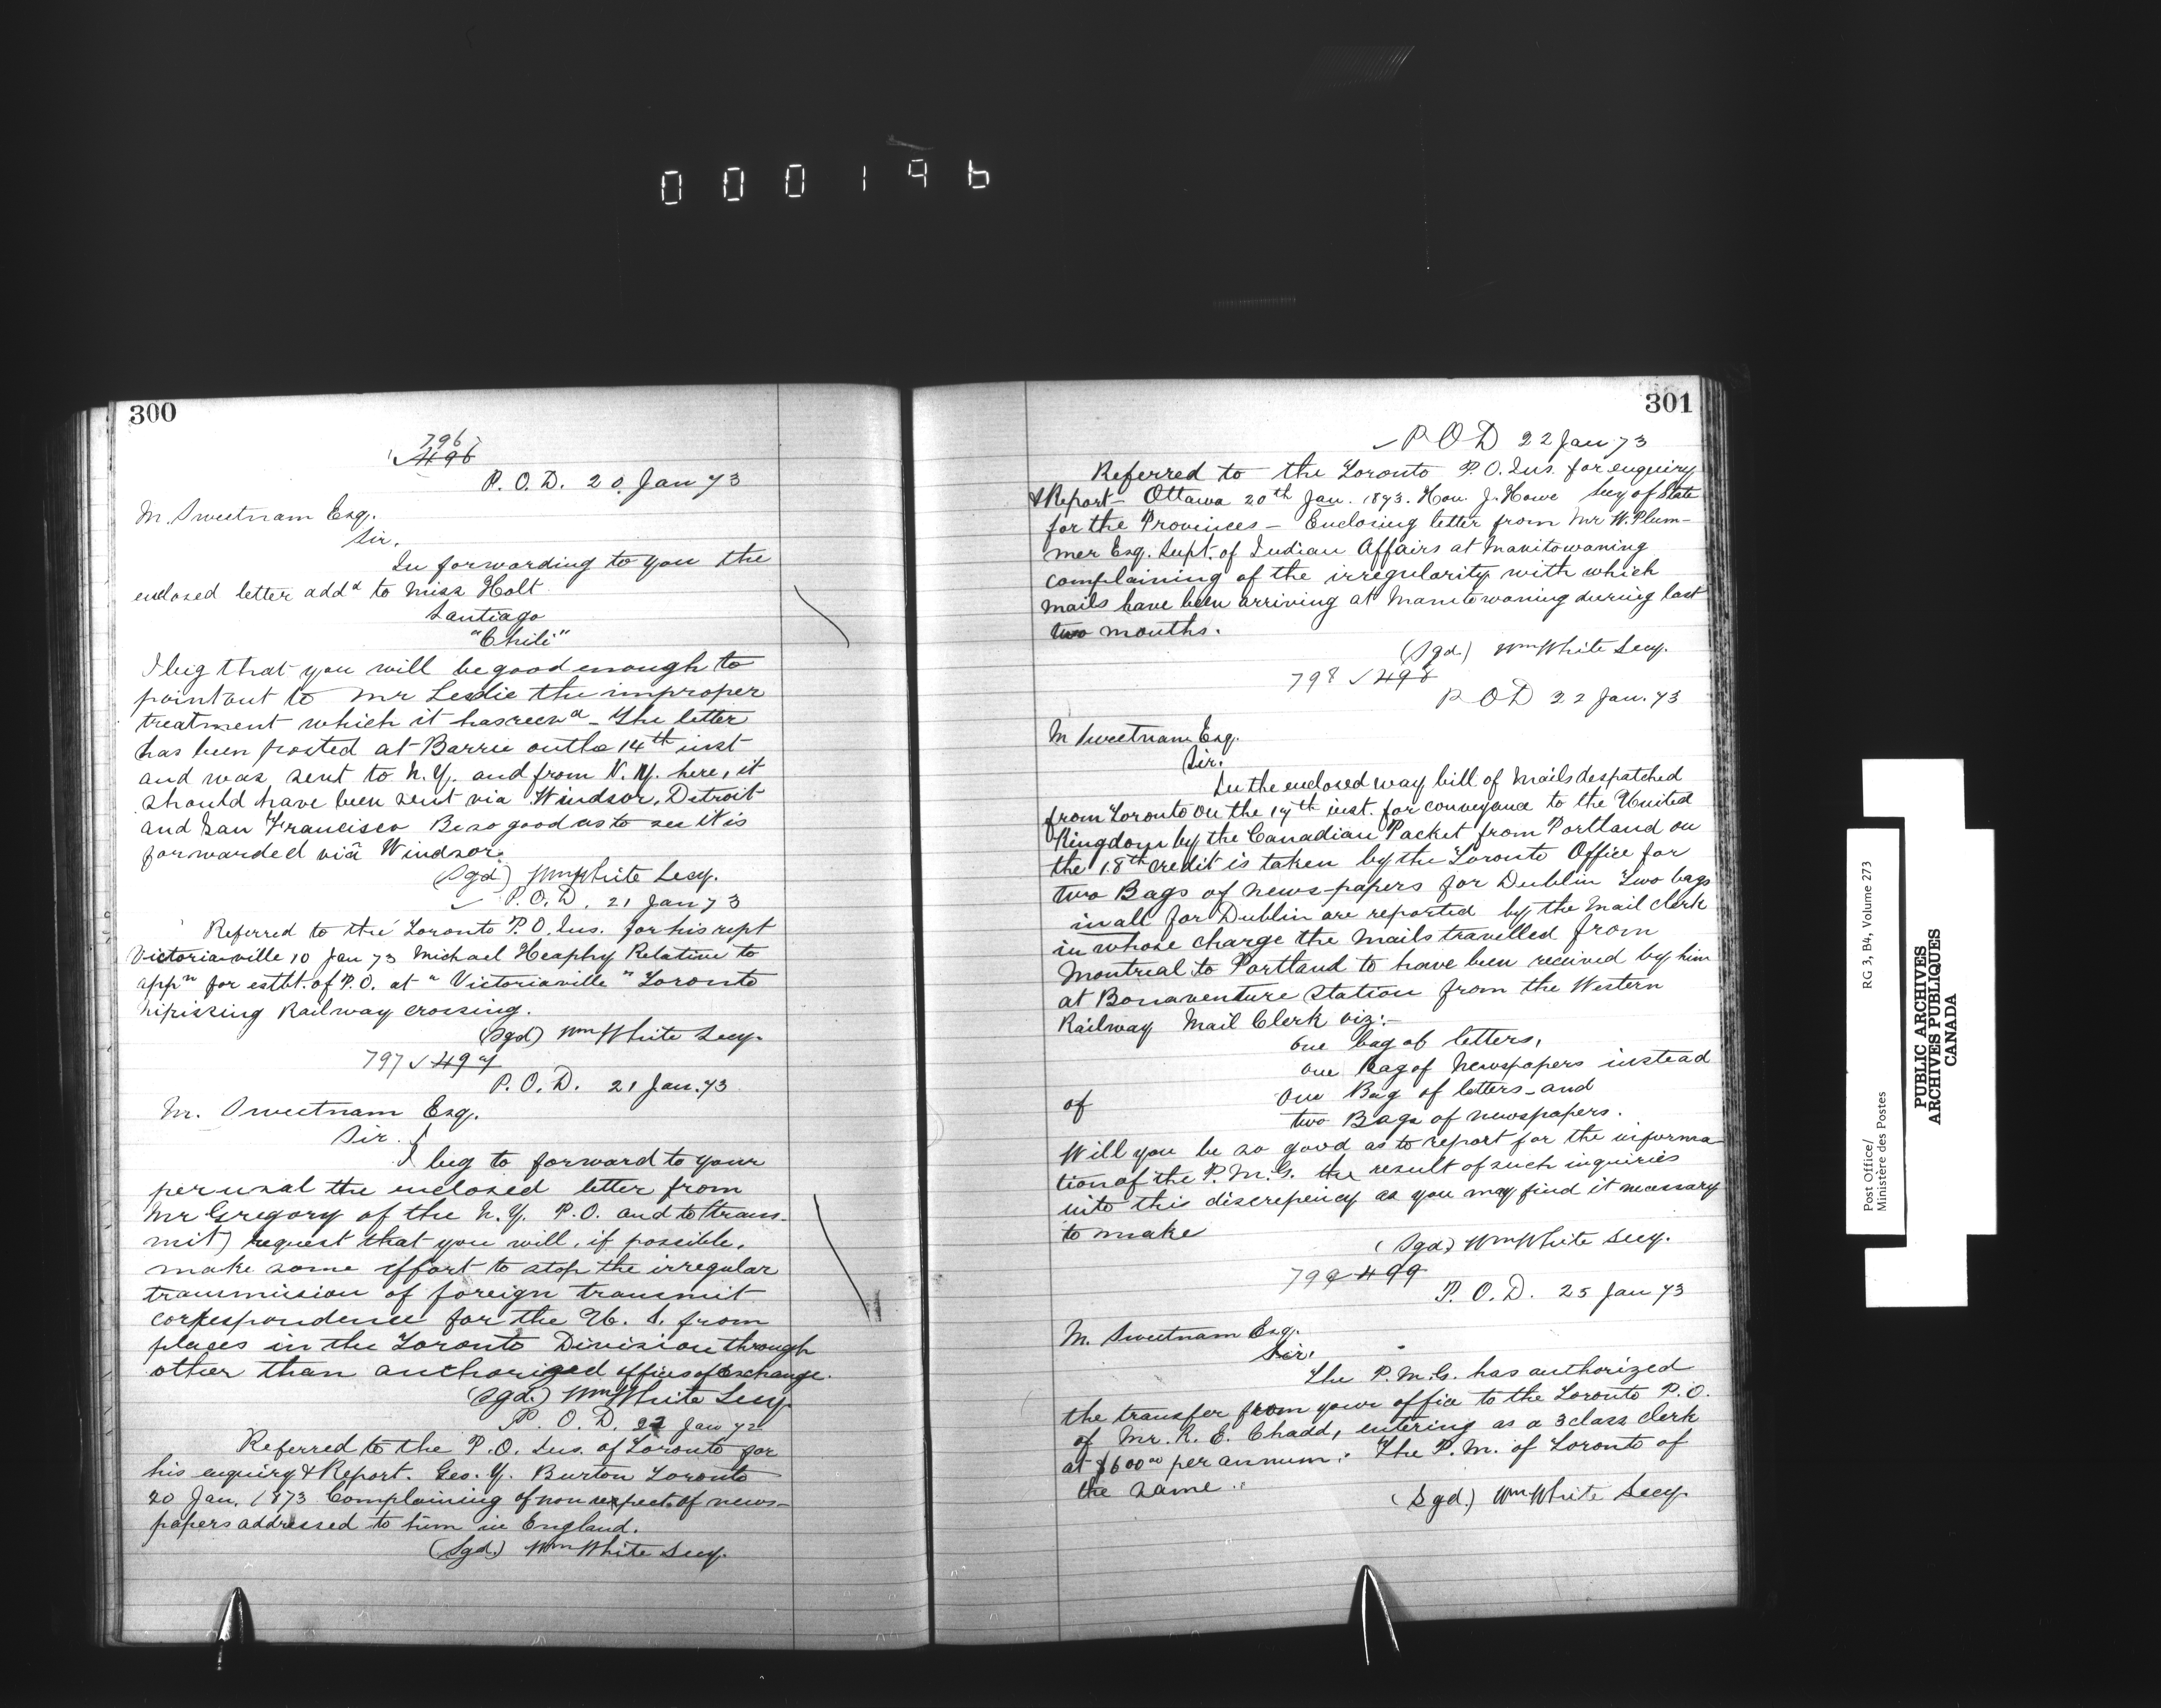 000196
300
796
496
P. O. D. 20 Jan 73
M. Sweetnam Esq.
Sir.
In forwarding to you the
enclosed letter addd to Miss Holt
Santiago
"Chili"
I beg that you will be good enough to
point out to Mr Leslie the improper
treatment which it has recvd - The letter
has been posted at Barrie on the 14th inst
and was sent to N.Y. and from N.Y. here, it
should have been sent via Windsor, Detroit
and San Francisco Be so good as to see it is
forwarded viâ Windsor.
(Sgd) Wm White Secy.
P. O. D. 21 Jan 73
Referred to the Toronto P.O. Ins. for his rept
Victoriaville 10 Jan 73 Michael Heaphy Relative to
appn for estbt. of P.O. at "Victoriaville" Toronto
Nipissing Railway crossing.
(Sgd) Wm White Secy.
797 497
P. O. D. 21 Jan. 73
M. Sweetnam Esq.
Sir.
I beg to forward to your
perusal the enclosed letter from
Mr Gregory of the N.Y. P.O. and to (trans-
mit) request that you will, if possible,
make some effort to stop the irregular
transmission of foreign transmit
correspondence for the U. S. from
places in the Toronto Division through
other than authorized offices of Exchange.
(Sgd.) Wm White Secy
P. O. D. 22 Jan 72
Referred to the P.O. Ins. of Toronto for
his enquiry & Report. Geo. Y. Burton Toronto
20 Jan, 1873 Complaining of non of news-
papers addressed to him in England.
(Sgd.) Wm White Secy.
301
P O D 22 Jan 73
Referred to the Toronto P.O. Ins. for enquiry
& Report - Ottawa 20th Jan. 1873. Hon. J. Howe Secy of State
for the Provinces - Enclosing letter from Mr W. Plum-
mer Esq. Supt. of Indian Affairs at Manitowaning
complaining of the irregularity with which
mails have been arriving at Manitowaning during last
two months.
(Sgd) Wm White Secy.
798 498
P O D 22 Jan. 73
M Sweetnam Esq.
Sir.
In the enclosed way bill of Mails despatched
from Toronto on the 17th inst. for conveyance to the United
Kingdom by the Canadian Packet from Portland on
the 18th credit is taken by the Toronto Office for
two Bags of news-papers for Dublin Two bags
in all for Dublin are reported by the Mail clerk
in whose charge the Mails travelled from
Montreal to Portland to have been received by him
at Bonaventure Station from the Western
Railway Mail Clerk viz:-
One bag of letters,
One Bag of Newspapers instead
of One Bag of letters - and
two Bags of newspapers.
Will you be so good as to report for the informa-
tion of the P.M.G. the result of such inquiries
into this discrepency as you may find it necessary
to make
(Sgd) Wm White Secy.
799 499
P. O. D. 25 Jan 73
M. Sweetnam Esq.
Sir.
The P.M.G. has authorized
the transfer from your office to the Toronto P.O.
of Mr. R. E. Chadd, entering as a 3 class clerk
at $600 00 per annum. The P.M. of Toronto of
the same.
(Sgd.) Wm White Secy.
Post Office/
Ministère des Postes
RG 3, B4, Volume 273
PUBLIC ARCHIVES
ARCHIVES PUBLIQUES
CANADA